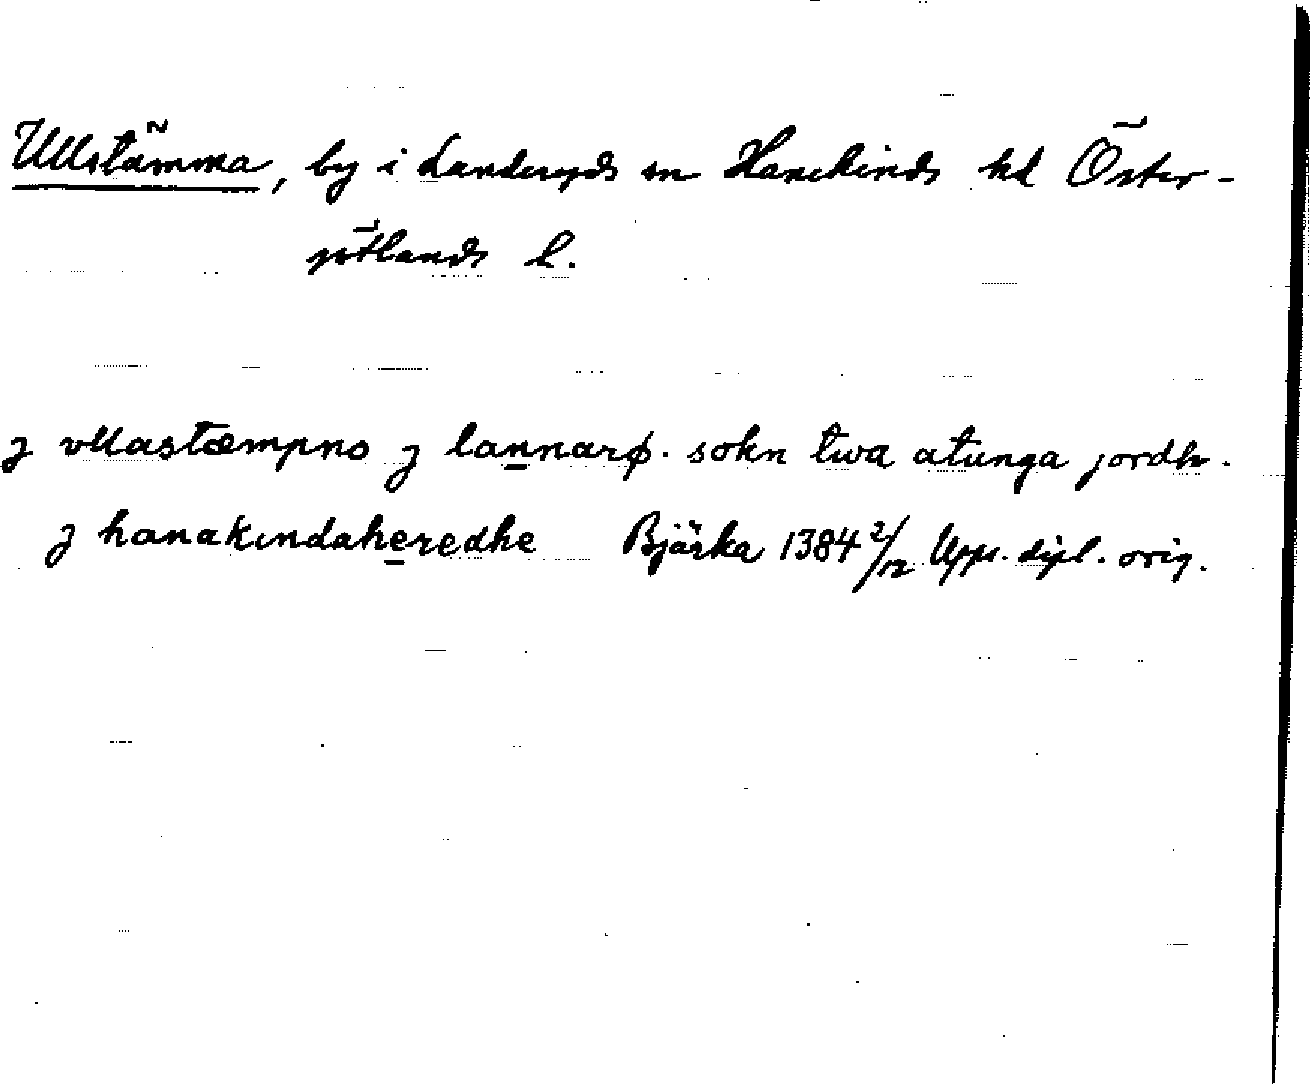 Ullstämma, by i Landeryds sn Hanekinds hd Öster-
götlands l.
j vllastæmpno j lannarø. sokn twa atunga jordh.
j hanakındaheredhe Bjärka 1384 2/12 Upps. dipl. orig.